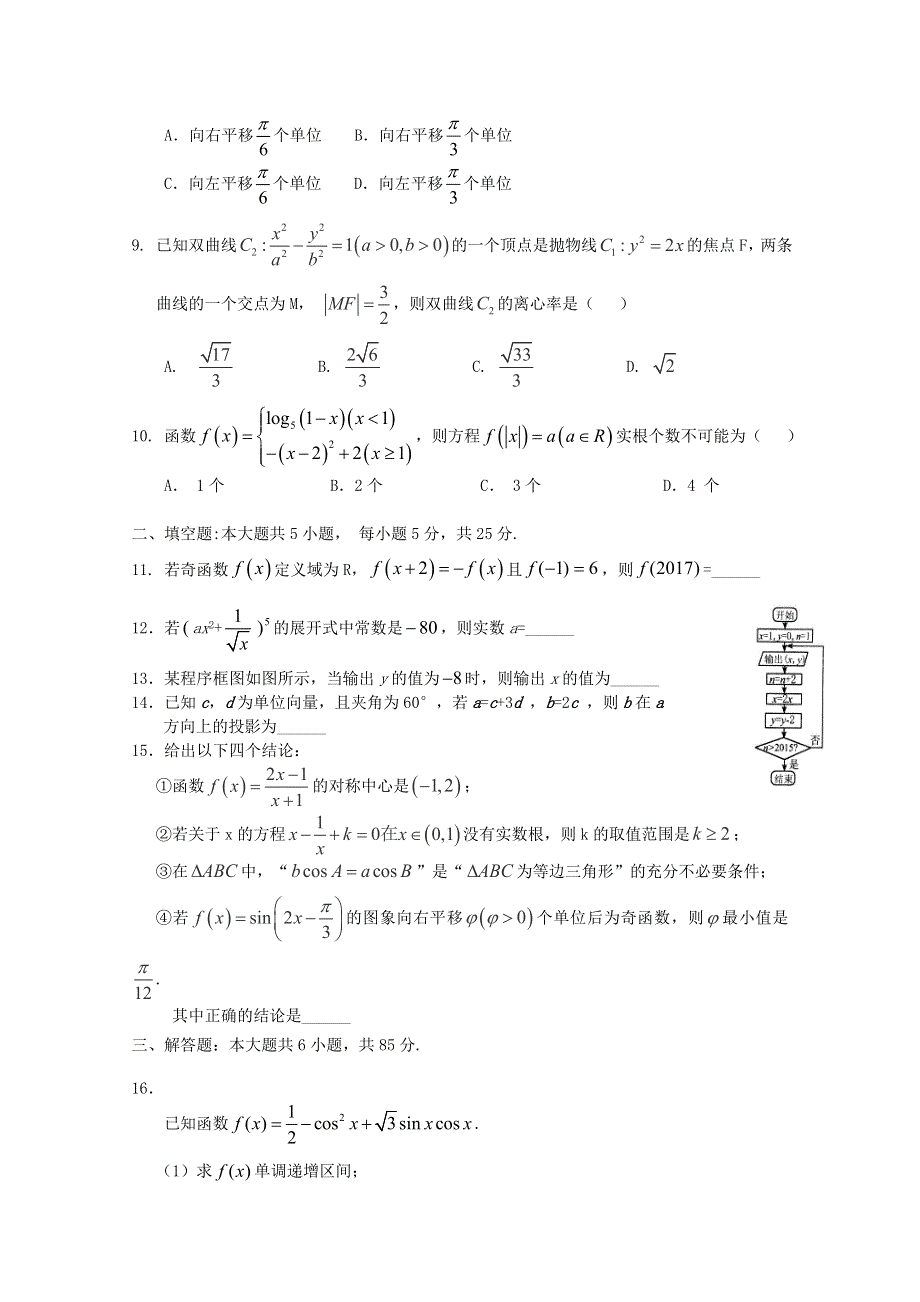 A. 向右平移π/6个单位 B. 向右平移π/3个单位
C. 向左平移π/6个单位 D. 向左平移π/3个单位
9. 已知双曲线C₂:x²/a²−y²/b²=1(a>0,b>0)的一个顶点是抛物线C₁:y²=2x的焦点F,两条
曲线的一个交点为M, |MF|=3/2,则双曲线C₂的离心率是( )
A. √17/3 B. 2√6/3 C. √33/3 D. √2
10. 函数f(x)={log₅(1−x)(x<1) −(x−2)²+2(x≥1),则方程f(|x|)=a(a∈R)实根个数不可能为( )
A. 1个 B.2个 C. 3个 D.4 个
二、填空题:本大题共5小题, 每小题5分,共25分.
11. 若奇函数f(x)定义域为R,f(x+2)=−f(x)且f(−1)=6,则f(2017)=______
12.若(ax²+1/√x)⁵的展开式中常数是−80,则实数a=______
13.某程序框图如图所示,当输出y的值为−8时,则输出x的值为______
14.已知c,d为单位向量,且夹角为60°,若a=c+3d ,b=2c ,则b在a
方向上的投影为______
15.给出以下四个结论:
①函数f(x)=(2x−1)/(x+1)的对称中心是(−1,2);
②若关于x的方程x−1/x+k=0在x∈(0,1)没有实数根,则k的取值范围是k≥2;
③在ΔABC中,“bcosA=acosB”是“ΔABC为等边三角形”的充分不必要条件;
④若f(x)=sin(2x−π/3)的图象向右平移φ(φ>0)个单位后为奇函数,则φ最小值是
π/12.
其中正确的结论是______
三、解答题:本大题共6小题,共85分.
16.
已知函数f(x)=1/2−cos²x+√3sinxcosx.
(1)求f(x)单调递增区间;
开始
x=1,y=0,n=1
输出(x,y)
n=n+2
x=2x
y=y-2
n>2015?
否
是
结束